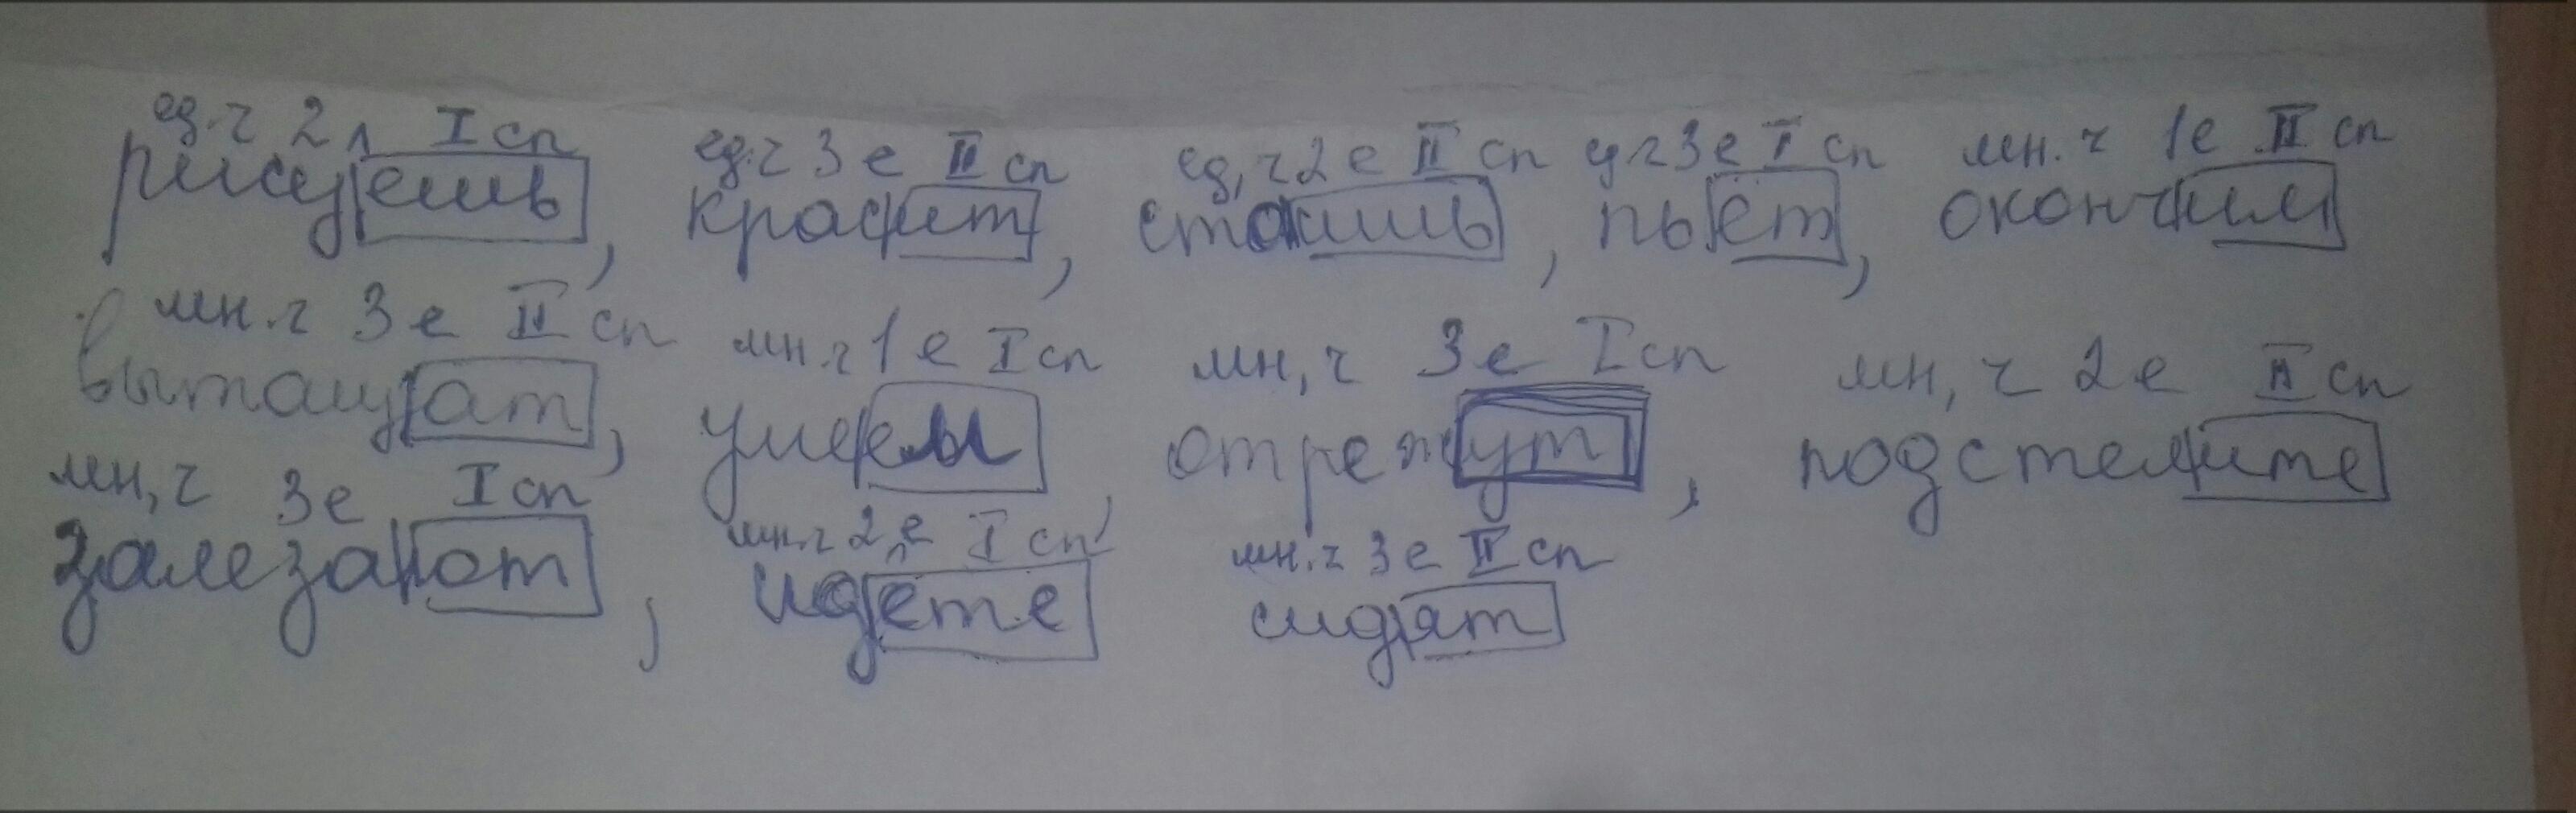 ед.ч 2л I сп ед.ч 3е II сп ед.ч 2е II сп ед.ч 3е I сп мн.ч 1е II сп
рисуешь, красит, стоишь, пьёт, окончим
мн.ч 3е II сп мн.ч 1е I сп мн,ч 3е I сп мн,ч 2е II сп
вытащат, умеем, отрежут, подстелите
мн,ч 3е I сп мн.ч 2е I сп мн.ч 3е II сп
залезают, идёте сидят